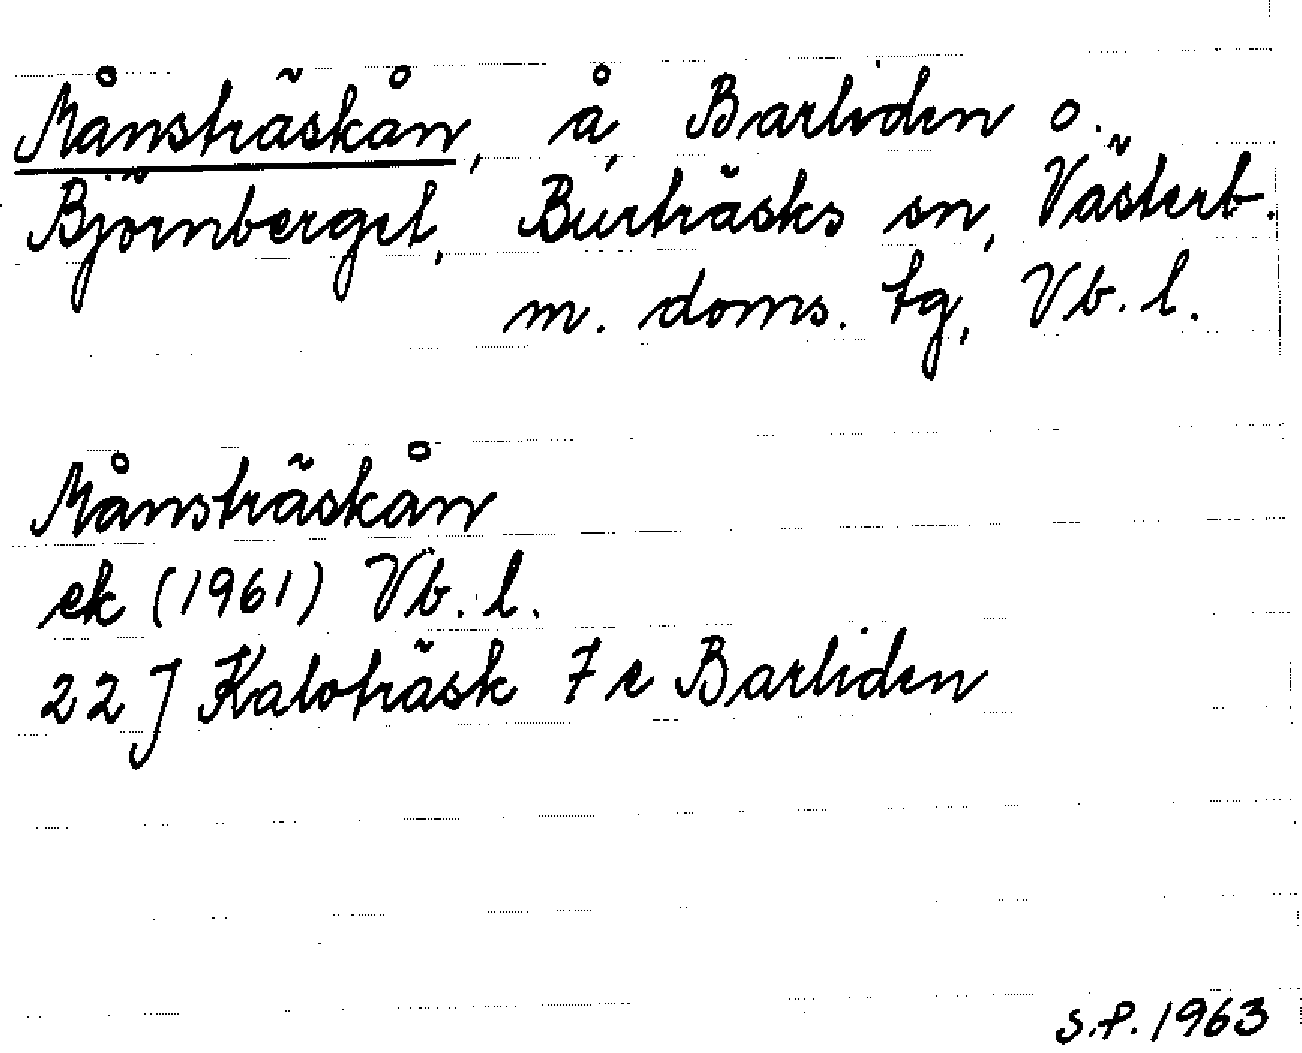 Månsträskån, å, Barliden o.
Björnberget, Burträsks sn, Västerb.
m. doms. tg, Vb. l.
Månsträskån
ek (1961) Vb. l.
22 J Kalvträsk 7 e Barliden
S.P. 1963